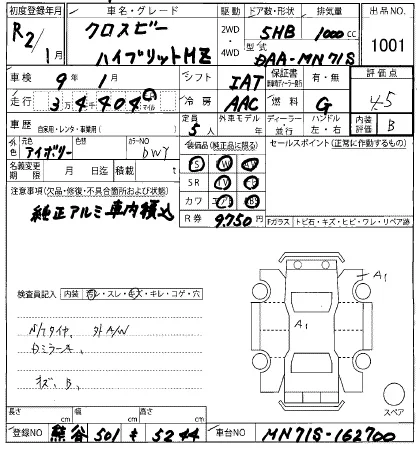 初度登録年月 車名・グレード 駆動 ドア数・形状 排気量 出品NO.
R2/1月 クロスビー 2WD・4WD 5HB 1000cc 1001
ハイブリットMZ 型式 DAA-MN71S
車検 9年 1月 シフト IAT 保証書 有・無 評価点
走行 3万4404 冷房 AAC 燃料 G 4.5
車歴 自家用・レンタ・事業用( ) 定員 5人 外車モデル ディーラー・並行 ハンドル 左・右 内装評価 B
外色 元色 アイボリー 色替 カラーNO DWY 装備品(純正品に限る) セールスポイント(正常に作動するもの)
名義変更期限 月 日迄 積載 t
注意事項(欠品・修復・不具合箇所および状態) SR TV
純正アルミ車内積込 カワ
R券 9,750円 Fガラス トビ石・キズ・ヒビ・ワレ・リペア跡
検査員記入 内装 スレ・キレ・コゲ・穴
A1
A1
N/Tタイヤ 外A/W
Dミラーキズ
キズ、B、
スペア
長さ cm 幅 cm 高さ cm
登録NO 熊谷 501 も 5244 車台NO MN71S-162700